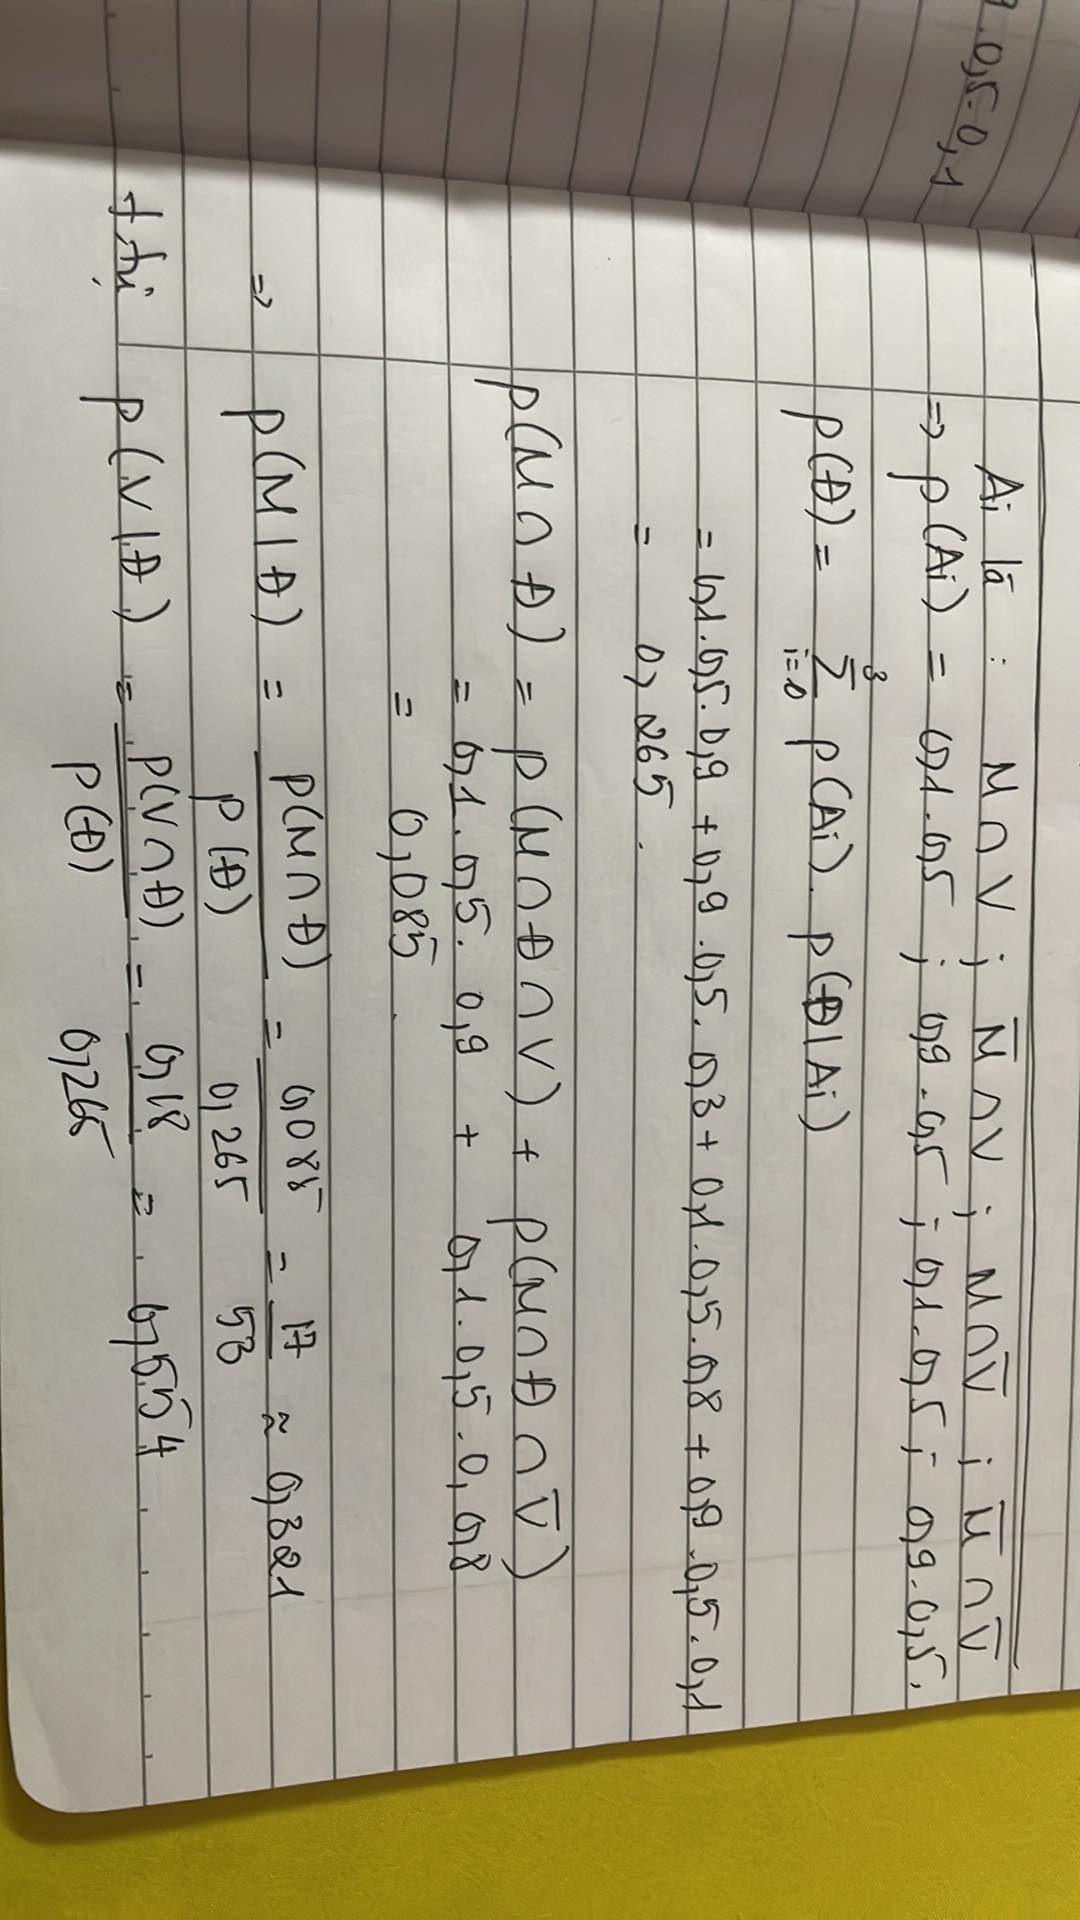 9.0,5.0,1
Ai là : M ∩ V ; M̅ ∩ V ; M ∩ V̅ ; M̅ ∩ V̅
=> p(Ai) = 0,1.0,5 ; 0,9.0,5 ; 0,1.0,5 ; 0,9.0,5.
p(Đ) = ∑_{i=0}^{3} p(Ai). p(Đ|Ai)
= 0,1.0,5.0,9 + 0,9.0,5.0,3 + 0,1.0,5.0,8 + 0,9.0,5.0,1
= 0,265.
p(M ∩ Đ) = p(M ∩ Đ ∩ V) + p(M ∩ Đ ∩ V̅)
= 0,1.0,5.0,9 + 0,1.0,5.0,0,8
= 0,085.
=> p(M|Đ) = p(M ∩ Đ) / p(Đ) = 0,085 / 0,265 = 17 / 53 ≈ 0,321
p(V|Đ) = p(V ∩ Đ) / p(Đ) = 0,18 / 0,265 = 0,554